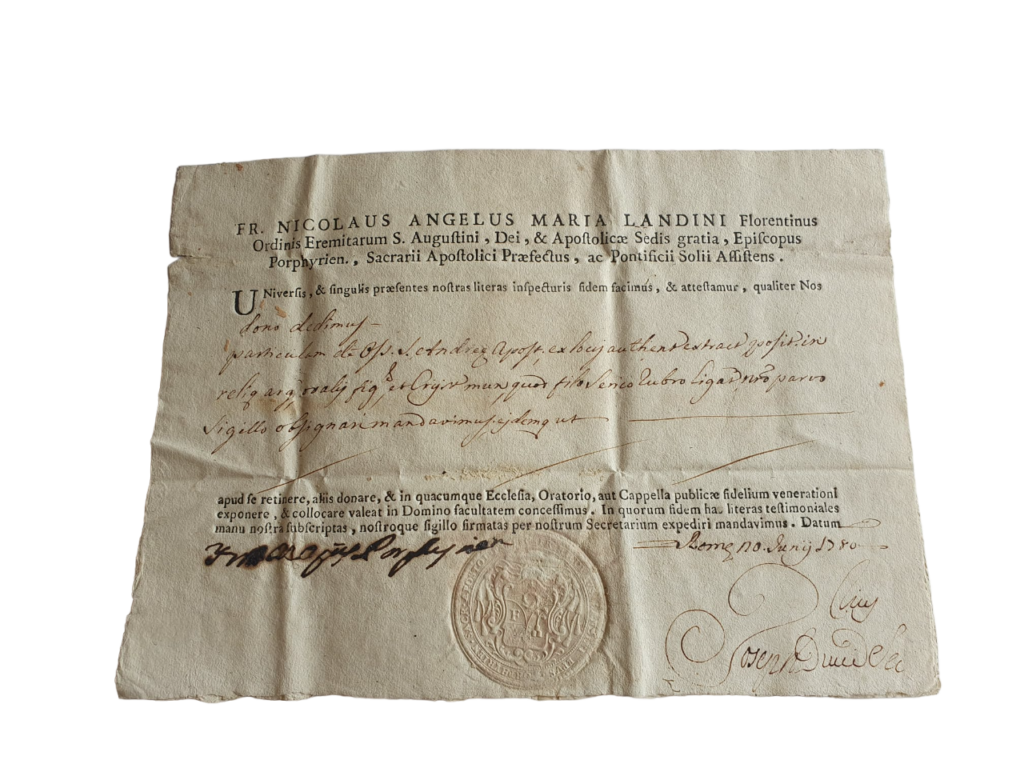 FR. NICOLAUS ANGELUS MARIA LANDINI Florentinus
Ordinis Eremitarum S. Augustini, Dei, & Apostolicæ Sedis gratia, Episcopus
Porphyrien., Sacrarii Apostolici Præfectus, ac Pontificii Solii Assistens.
UNiversis, & singulis præsentes nostras literas inspecturis fidem facimus, & attestamur, qualiter Nos
dono dedimus
particulam Oss. S. Andreę Apost. ex locis authent extract posit. in
fig et Cryst mun, quod filo Serico Rubro Ligat nro parvo
Sigillo obsignari mandavimus ut
apud se retinere, aliis donare, & in quacumque Ecclesia, Oratorio, aut Cappella publicæ fidelium venerationi
exponere, & collocare valeat in Domino facultatem concessimus. In quorum fidem has literas testimoniales
manu nostra subscriptas, nostroque sigillo firmatas per nostrum Secretarium expediri mandavimus. Datum
Romę Junij
Joseph